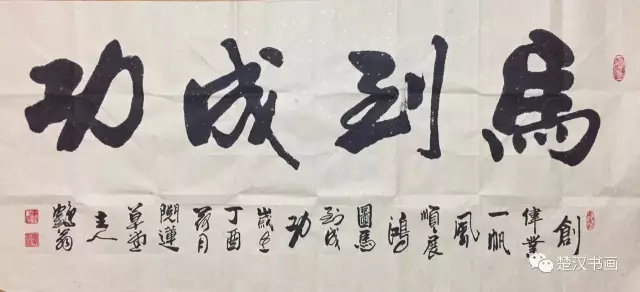 馬到成功
創
偉業
一帆
風
順展
鴻
圖馬
到成
功
歲在
丁酉
荷月
閱蓮
草堂
主人
鶴翁
楚汉书画